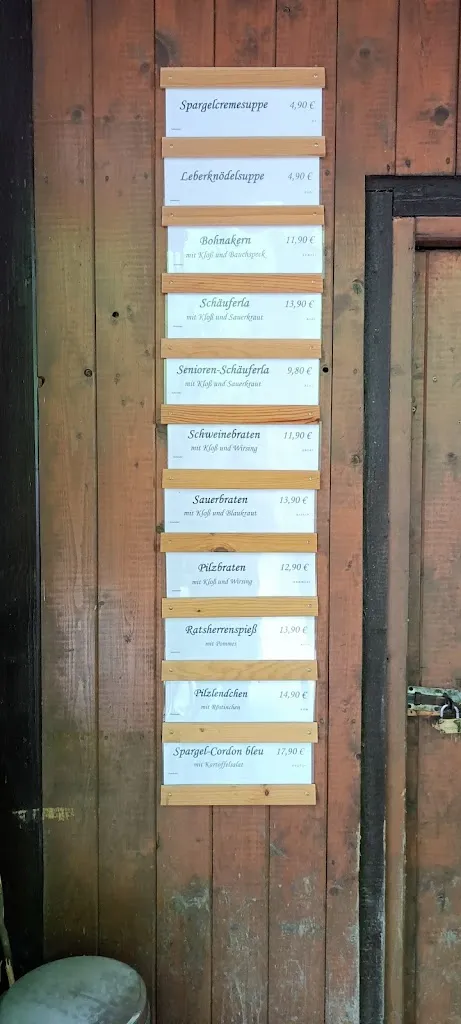 Spargelcremesuppe 4,90 €
Leberknödelsuppe 4,90 €
Bohnakern 11,90 €
mit Kloß und Bauchspeck
Schäuferla 13,90 €
mit Kloß und Sauerkraut
Senioren-Schäuferla 9,80 €
mit Kloß und Sauerkraut
Schweinebraten 11,90 €
mit Kloß und Wirsing
Sauerbraten 13,90 €
mit Kloß und Blaukraut
Pilzbraten 12,90 €
mit Kloß und Wirsing
Ratsherrenspieß 13,90 €
mit Pommes
Pilzlendchen 14,90 €
mit Röstinchen
Spargel-Cordon bleu 17,90 €
mit Kartoffelsalat